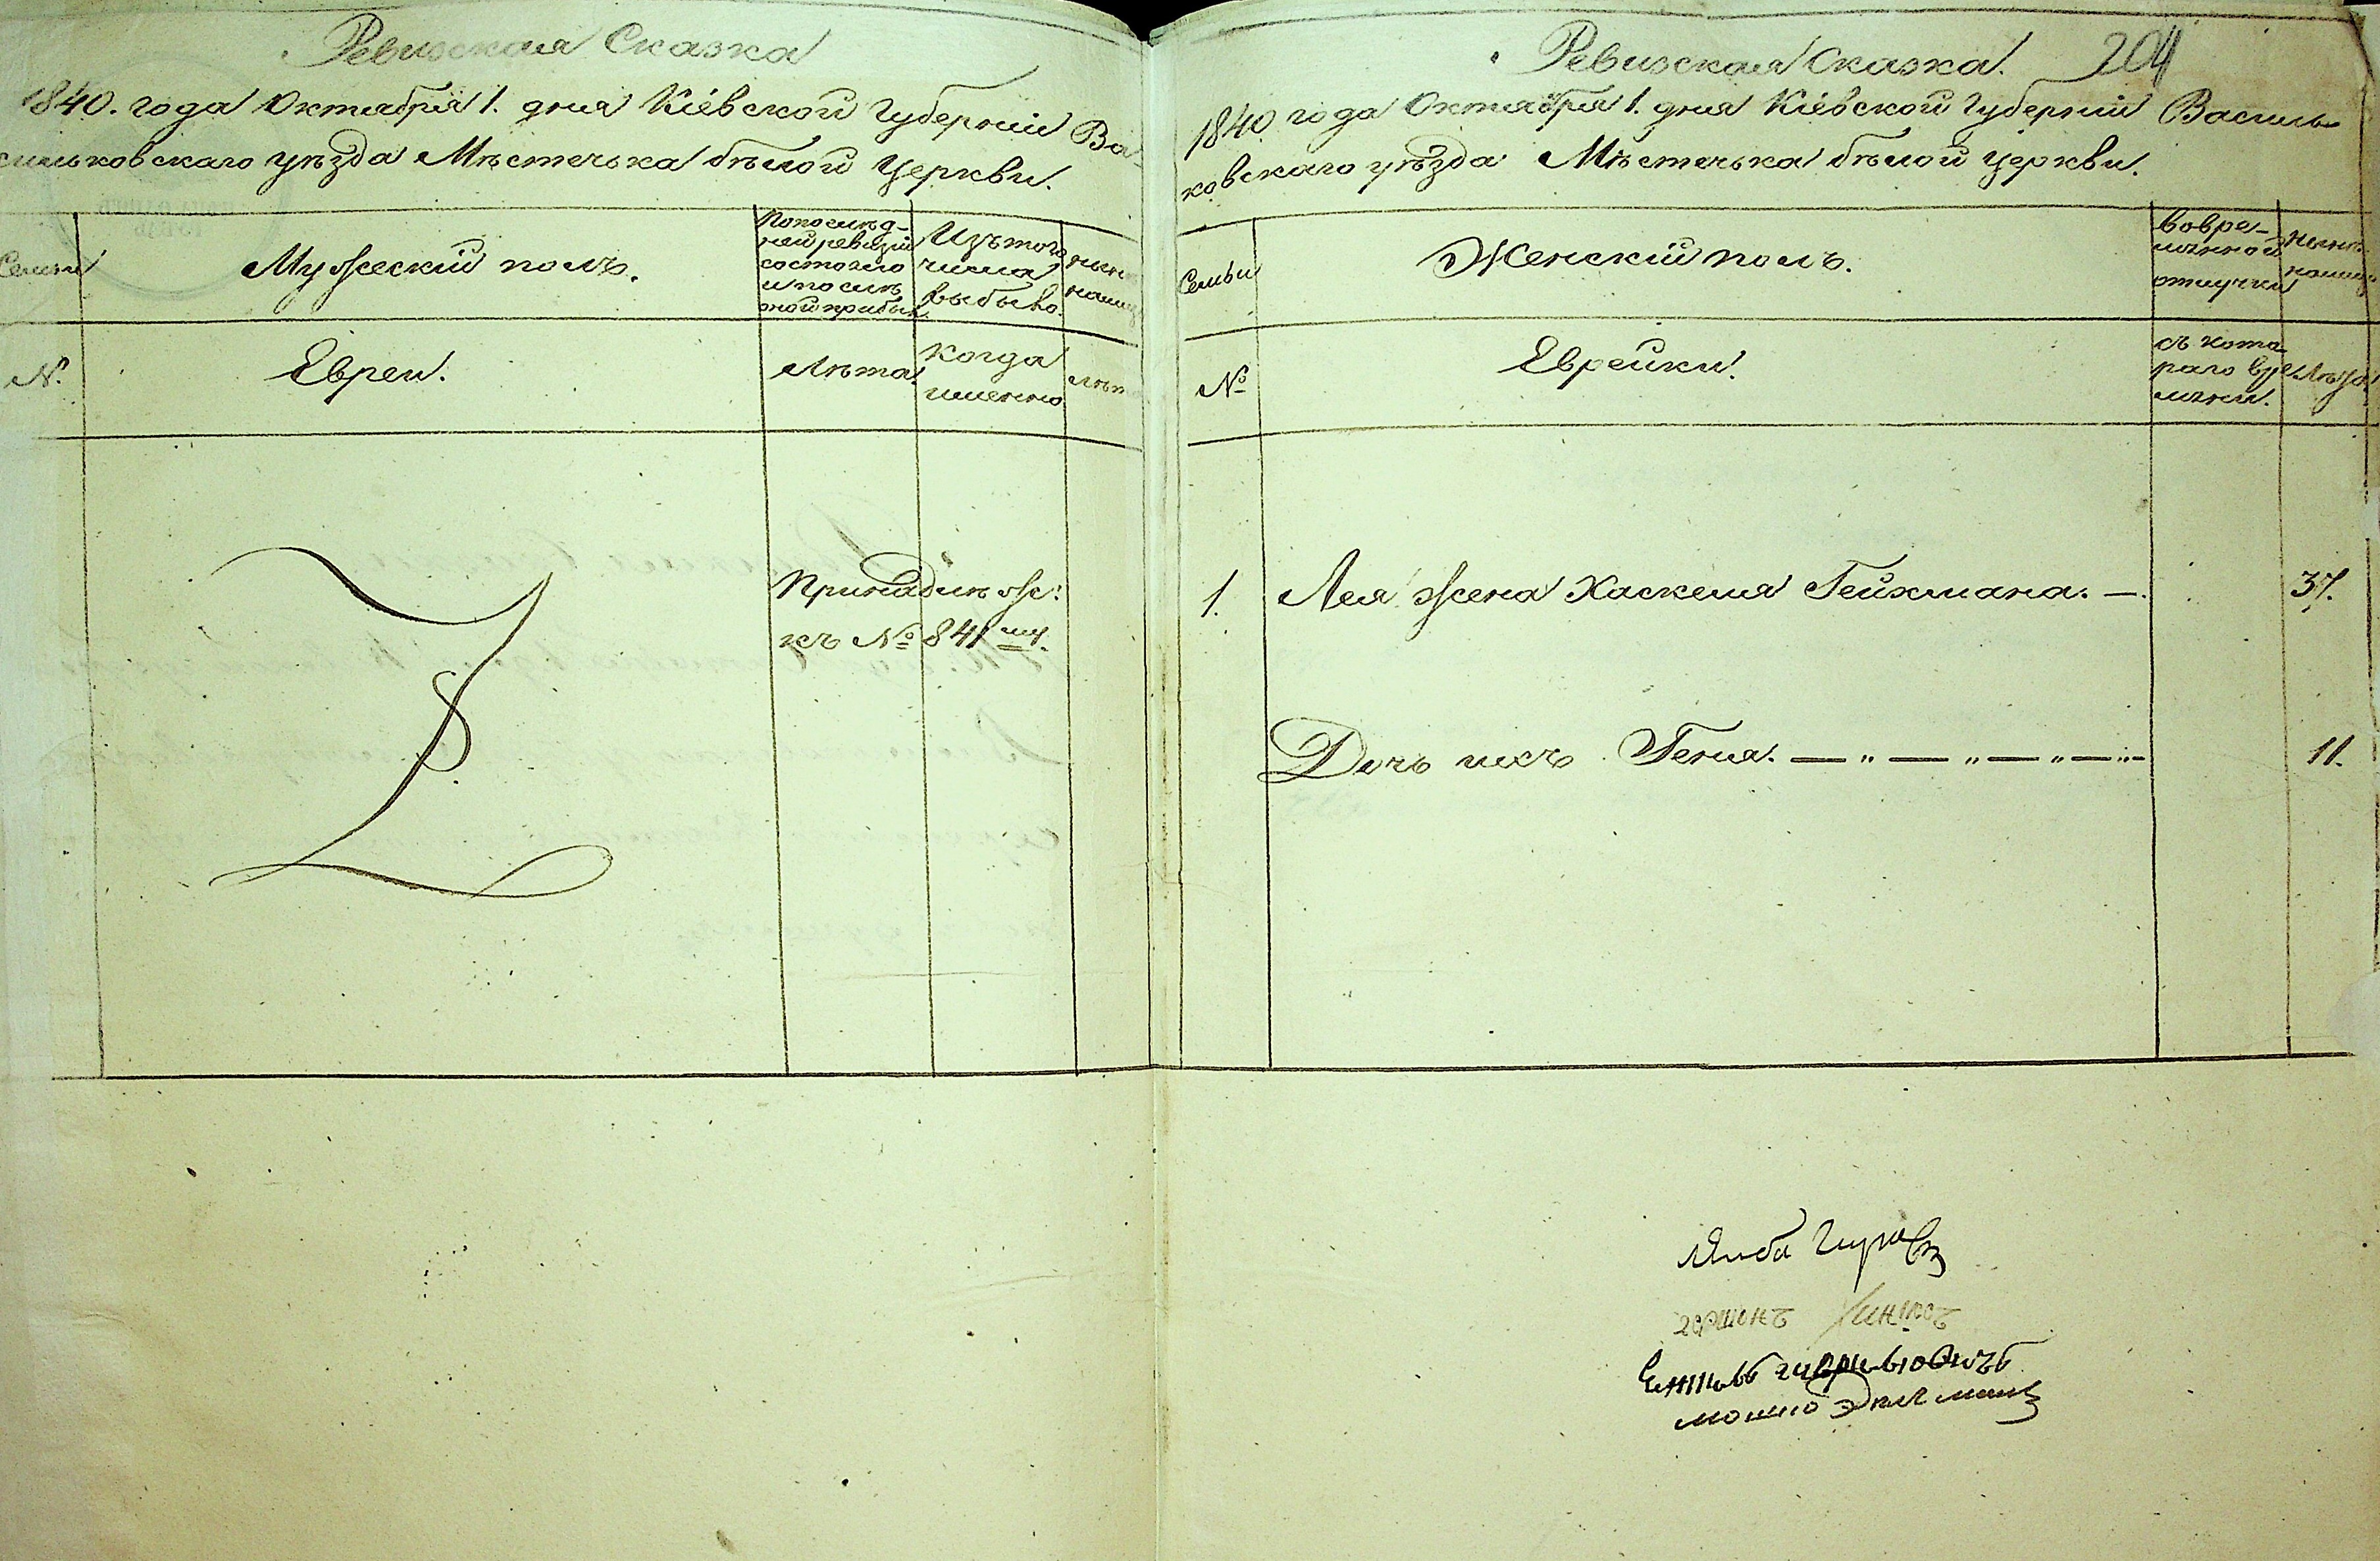 Ревизская Сказка
1840. года Октября 1. дня Кіевской Губерніи Ва-
сильковскаго уѣзда Мѣстечька бѣлой Церкви.
Семьи
Мужескій полъ.
По послѣд-
ней ревизіи
состояло
и послѣ
оной прибыло
Изъ того
числа
выбыло.
нынѣ
налицо
№.
Евреи.
Лѣта.
когда
именно
лѣта
Принадлеж:
къ № 841му.
Ревизская Сказка. 204
1840 года Октября 1. дня Кіевской Губерніи Василь-
ковскаго уѣзда Мѣстечька бѣлой Церкви.
Семьи
Женскій полъ.
Во вре-
мѣнной
отлучки
нынѣ
налицо
№
Еврейки.
съ кота-
раго вре
мѣни.
Лѣта
1. Лея жена Хаскеля Гейхмана. — 37.
Дочь ихъ Геня. — „ — „ — „ — „ — 11.
мошко